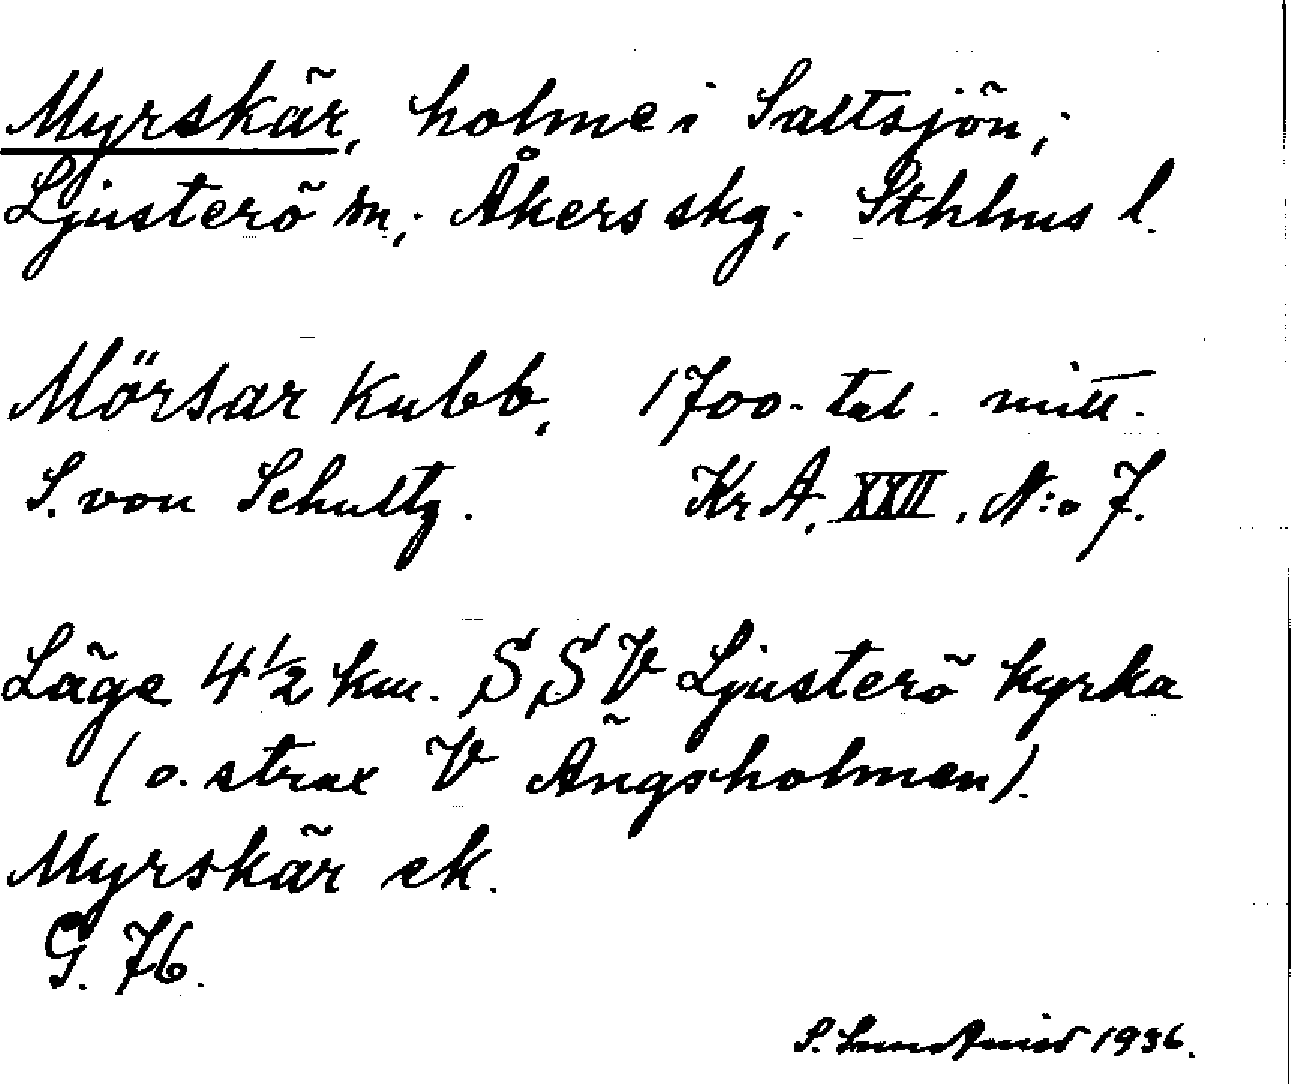 Myrskär, holme i Saltsjön;
Ljusterö sn; Åkers skg; Sthlms l.
Mörsar kubb, 1700-tal. mitt.
S. von Schultz. Kr A. XXII. N:o 7.
Läge 4½ km. SSV Ljusterö kyrka
(o. strax V Ängsholmen).
Myrskär ek.
G. 76.
S. Lundqvist 1936.